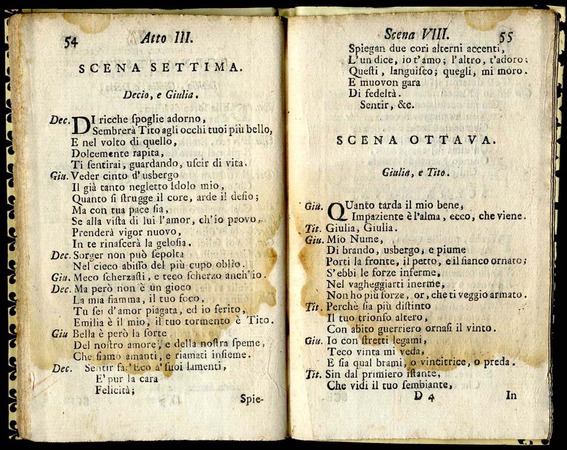 54 Atto III.
SCENA SETTIMA.
Decio, e Giulia.
Dec. DI ricche spoglie adorno,
Sembrerà Tito agli occhi tuoi più bello,
E nel volto di quello,
Dolcemente rapita,
Ti sentirai, guardando, uscir di vita.
Giu. Veder cinto d'usbergo
Il già tanto negletto Idolo mio,
Quanto si strugge il core, arde il desio;
Ma con tua pace sia,
Se alla vista di lui l'amor, ch'io provo,
Prenderà vigor nuovo,
In te rinascerà la gelosia.
Dec. Sorger non può sepolta
Nel cieco abisso del più cupo oblio.
Giu. Meco scherzasti, e teco scherzo anch'io.
Dec. Ma però non è un gioco
La mia fiamma, il tuo foco,
Tu sei d'amor piagata, ed io ferito,
Emilia è il mio, il tuo tormento è Tito.
Giu Bella è però la sorte
Del nostro amore, e della nostra speme,
Che siamo amanti, e riamati insieme.
Dec. Sentir a' suoi lamenti,
E' pur la cara
Felicità;
Spie-
Scena VIII. 55
Spiegan due cori alterni accenti,
L'un dice, io t'amo; l'altro, t'adoro;
Questi, languisco; quegli, mi moro.
E muovon gara
Di fedeltà.
Sentir, &c.
SCENA OTTAVA.
Giulia, e Tito.
Giu. QUanto tarda il mio bene,
Impaziente è l'alma, ecco, che viene.
Tit. Giulia, Giulia.
Giu. Mio Nume,
Di brando, usbergo, e piume
Porti la fronte, il petto, e il fianco ornato;
S'ebbi le forze inferme,
Nel vagheggiarti inerme,
Non ho più forze, or, che ti veggio armato.
Tit. Perchè sia più distinto
Il tuo trionfo altero,
Con abito guerriero ornasi il vinto.
Giu. Io con stretti legami,
Teco vinta mi veda,
E sia qual brami, o vincitrice, o preda.
Tit. Sin dal primiero istante,
Che vidi il tuo sembiante,
D 4 In